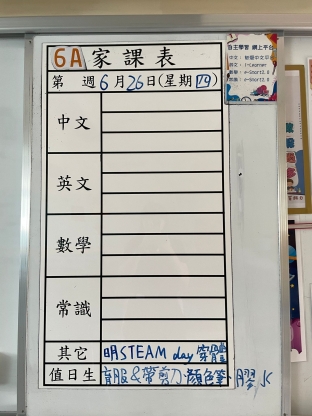 6A家課表
自主學習 網上平台
第 週6月26日(星期四)
中文
英文
數學
常識
其它 明STEAM day 穿體
值日生 育服&帶剪刀 顏色筆 膠水